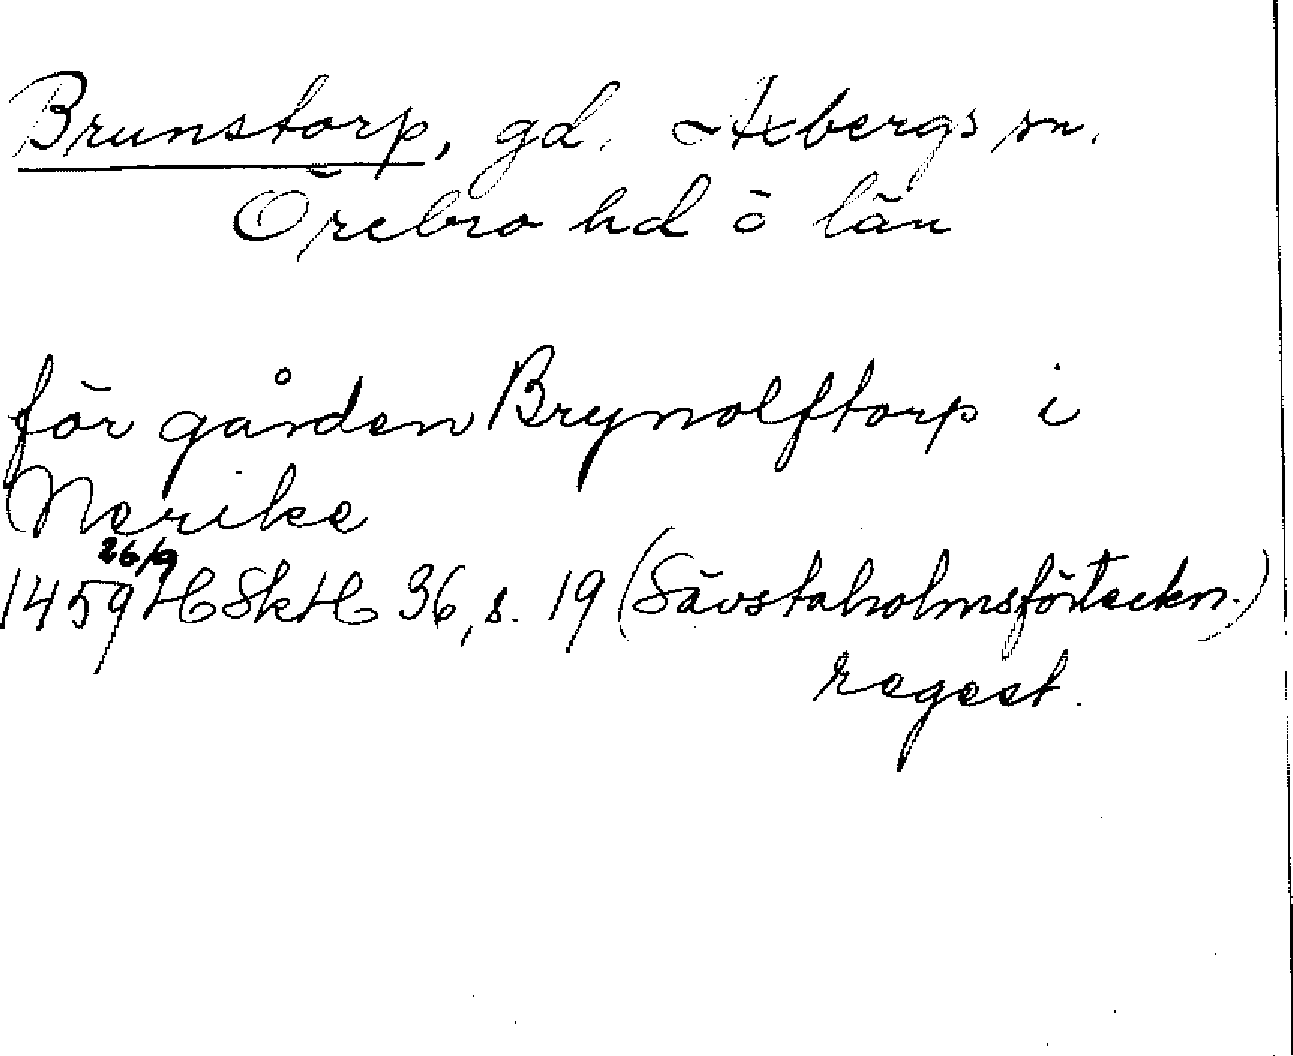 Brunstorp, gd. Axbergs sn.
Örebro hd ö län
för gården Brynolftorp i
Nerike
1459 26/9 HSkH 36, s. 19 (Sävstaholmsförteckn.)
regest.